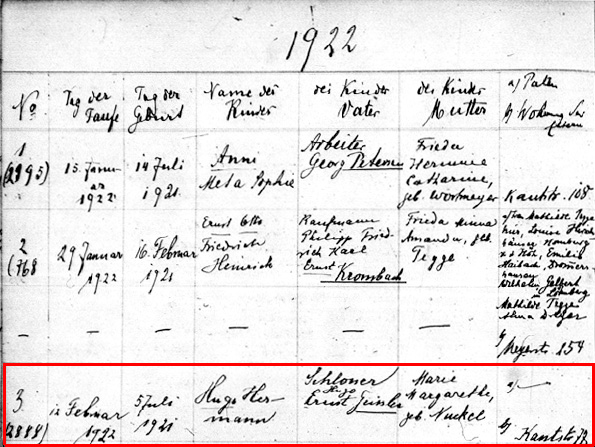 1922
No
Tag der Taufe
Tag der Geburt
Name des Kindes
des Kindes Vater
des Kindes Mutter
a) Paten
b) Wohnung der Eltern
1
(2995)
15. Januar
1922
14 Juli
1921
Anni
Meta Sophie
Arbeiter
Georg Petersen
Frieda
Hermine
Catharine,
geb. Wortmeyer
Kantstr. 108
2
(768
29 Januar
1922
16. Februar
1921
Ernst Otto
Friedrich
Heinrich
Kaufmann
Philipp Fried-
rich Karl
Ernst
Krombach
Frieda Minna
Amanda, geb.
Tegge
Wilhelm Gelbert
Mathilde Tegge
Alma Dreyer
b)
Meyerstr. 154
3
(2888)
12 Februar
1922
5 Juli
1921
Hugo Her-
mann
Schlosser
Hugo
Ernst Geissler
Marie
Margarethe,
geb. Nuckel
a) —
b) Kantstr.